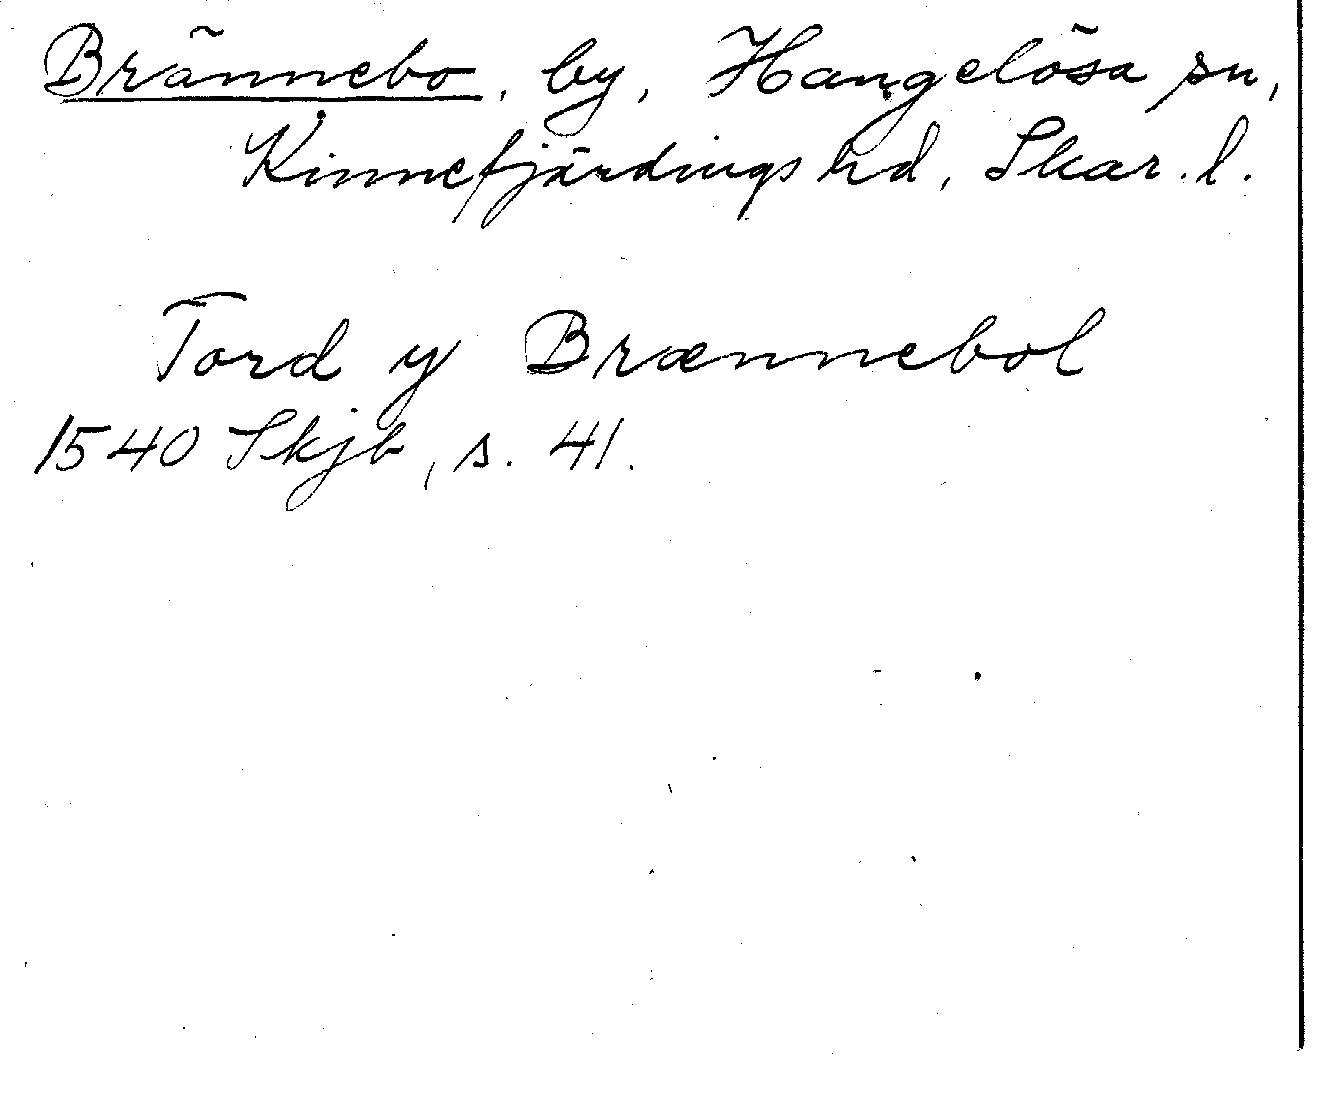 Brännebo, by, Hangelösa sn,
Kinnefjärdings hd, Skar. l.
Tord y Brænnebol
1540 Skjb, s. 41.